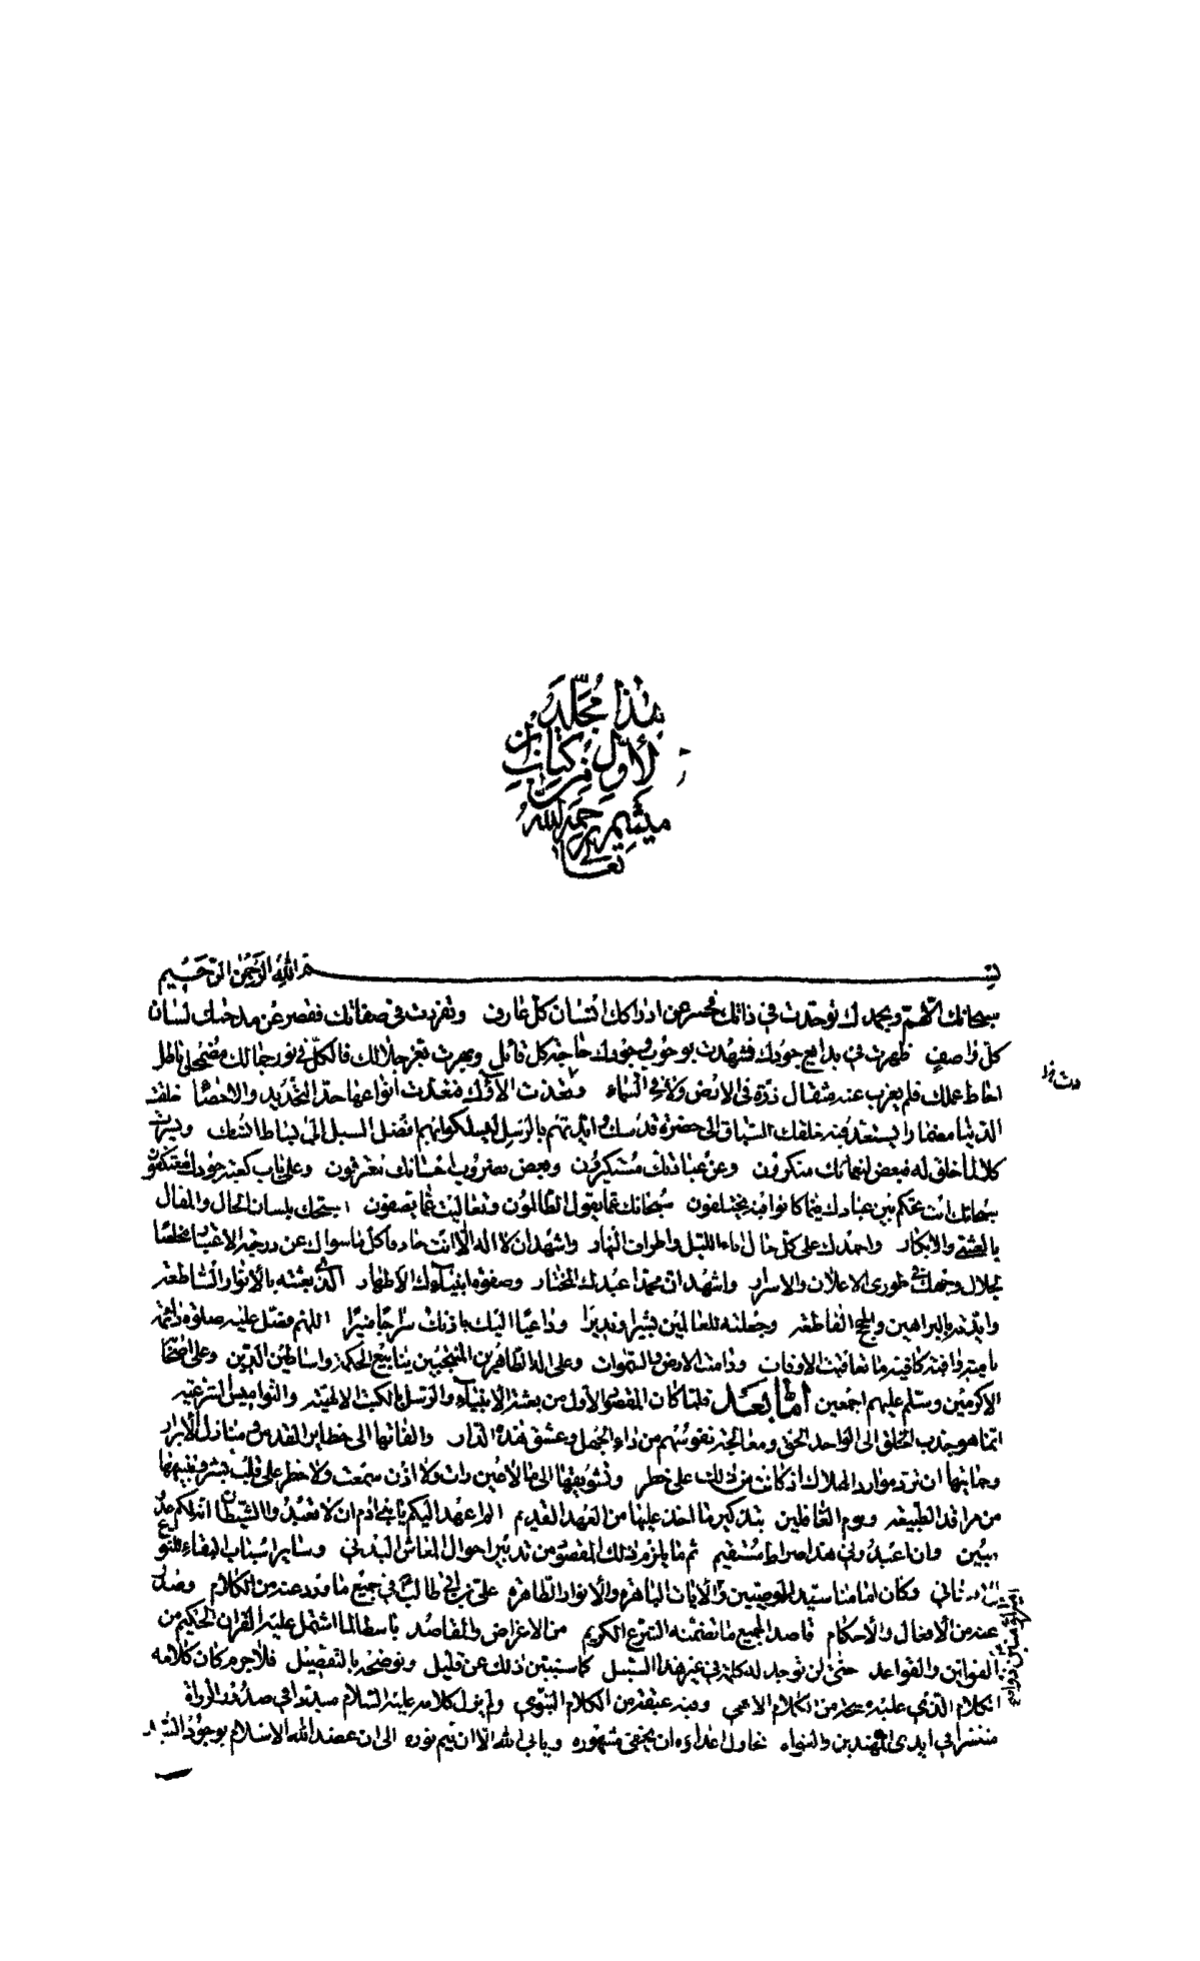 هذا مجلد
الأول من كتاب ابن
ميثم رحمه الله
تعالى
بسم الله الرحمن الرحيم
سبحانك اللهم وبحمدك توحدت في ذاتك فحسر عن ادراكك انسان كل عارف وتفردت في صفاتك فقصر عن مدحتك لسان
كل واصف ظهرت في بدايع جودك فشهدت بوجوب وجودك حاجة كل قابل وبهرت بعز جلالك فالكل في نور جمالك مضمحل باطل
احاط علمك فلم يعزب عنه مثقال ذرة في الارض ولا في السماء وتعددت الآؤك فتعدت انواعها حد التحديد والاحصا خلقت
الدنيا مضمارا يستعد فيه خلقك السباق الى حضرة قدسك وايدتهم بالرسل ليسلكوا بهم افضل السبل الى بساط انسك ويسرت
كلا لما خلق له فبعض لنعمائك منكرون وعن عبادتك مستكبرون وبعض بضروب احسانك معترفون وعلى باب كعبة جودك معتكفون
سبحانك انت تحكم بين عبادك فيما كانوا فيه يختلفون سبحانك عما يقول الظالمون وتعاليت عما يصفون اسبحك بلسان الحال والمقال
بالعشي والابكار واحمدك على كل حال اناء الليل واطراف النهار واشهد ان لا اله الا انت حاذفا كل ما سواك عن درجة الاعتبار مخلصا
لجلال وجهك في طوري الاعلان والاسرار واشهد ان محمدا عبدك المختار وصفوة انبيائك الاطهار الذي بعثته بالأنوار الساطعة
وايدته بالبراهين والحجج القاطعة وجعلته للعالمين بشيرا ونذيرا وداعيا اليك باذنك سراجا منيرا اللهم فصل عليه صلوة دائمة
نامية وافية كافية ما تعاقبت الاوقات ودامت الارض والسموات وعلى اله الطاهرين المنتجبين ينابيع الحكمة واساطين الدين وعلى اصحابه
الاكرمين وسلم عليهم اجمعين اما بعد فلما كان المقصود الاول من بعثة الانبياء والرسل بالكتب الالهية والنواميس الشرعية
انما هو جذب الخلق الى الواحد الحق ومعالجة نفوسهم من داء الجهل وعشق هذه الدار والفاتها الى حظاير القدس من منازل الأبرار
وحمايتها ان ترد موارد الهلاك اذ كانت من ذلك على خطر وتشويقها الى ما لا عين رات ولا اذن سمعت ولا خطر على قلب بشر وتنبيهها
من مراقد الطبيعة ونوم الغافلين بتذكير ما اخذ عليها من العهد القديم الم اعهد اليكم يا بني ادم ان لا تعبدوا الشيطان انه لكم عدو
مبين وان اعبدوني هذا صراط مستقيم ثم ما يلزم ذلك المقصود من تدبير احوال المعاش البدني وساير اسباب البقاء للنوع
الانساني وكان امامنا سيد الوصيين ذو الآيات الباهره والأنوار الظاهره علي بن ابي طالب في جميع ما ورد عنه من الكلام وصدر
عنه من الأفعال والأحكام قاصدا لجميع ما تضمنه الشرع الكريم من الاغراض والمقاصد باسطا لما اشتمل عليه القرآن الحكيم من
القوانين والقواعد حتى لن توجد له كلمة في غير هذا السبيل كما سنبين ذلك عن قليل ونوضحه بالتفصيل فلا جرم كان كلامه
الكلام الذي عليه مسحة من الكلام الالهي وفيه عبقة من الكلام النبوي ولم يزل كلامه عليه السلام مبددا في صدور الرواة
منتشرا في ايدي المهتدين والغواه تحاول اعداؤه ان يخفى مشهوره ويأبى الله الا ان يتم نوره الى ان عضد الله الاسلام بوجود السيد